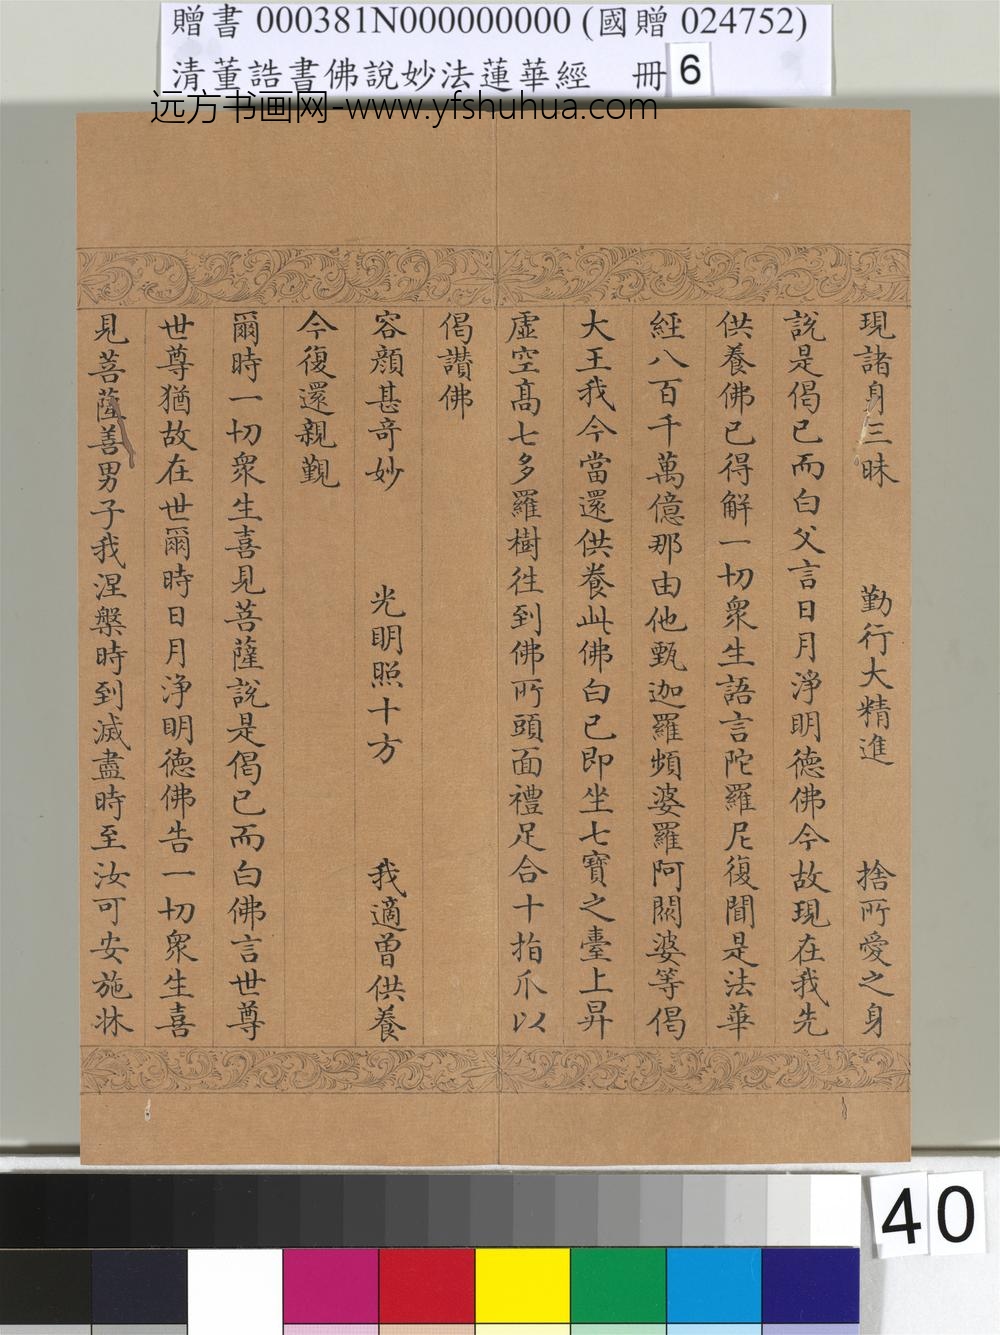 贈書 000381N000000000 (國贈 024752)
清董誥書佛說妙法蓮華經 冊 6
远方书画网-www.yfshuhua.com
現諸身三昧 勤行大精進 捨所愛之身
說是偈已而白父言日月淨明德佛今故現在我先
供養佛已得解一切衆生語言陀羅尼復聞是法華
經八百千萬億那由他甄迦羅頻婆羅阿閦婆等偈
大王我今當還供養此佛白已即坐七寶之臺上昇
虛空高七多羅樹往到佛所頭面禮足合十指爪以
偈讃佛
容顏甚奇妙 光明照十方 我適曾供養
今復還親覲
爾時一切衆生喜見菩薩說是偈已而白佛言世尊
世尊猶故在世爾時日月淨明德佛告一切衆生喜
見菩薩善男子我涅槃時到滅盡時至汝可安施牀
40